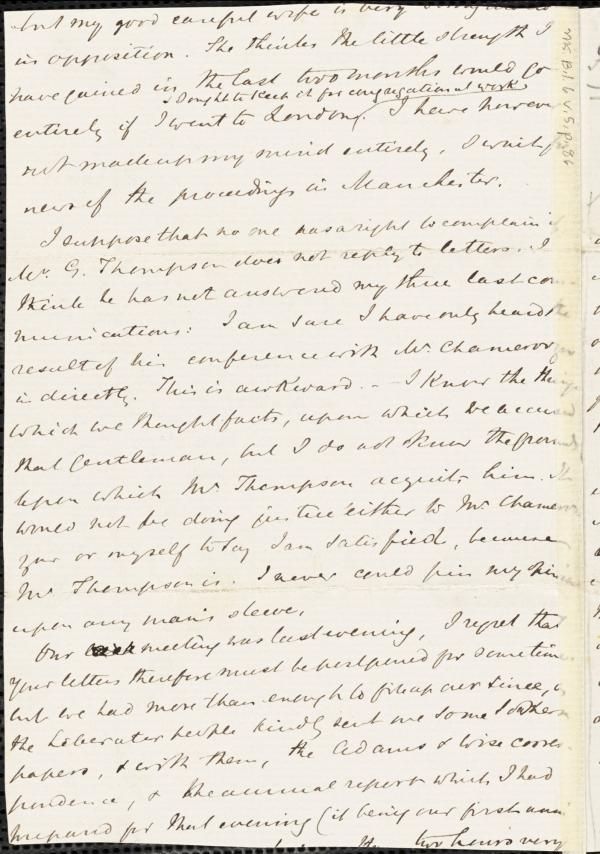 but my good careful wife is very
in opposition. She thinks the little strength I
have gained in the last two months would go
I ought to keep it for congregational work
entirely if I went to London. I have however
not made up my mind entirely. I wait for
news of the proceedings in Manchester.
I suppose that no one has a right to complain if
Mr. G. Thompson does not reply to letters. I
think he has not answered my three last com
munications: I am sure I have only heard the
result of his conference with Mr. Chamerov
indirectly. This is awkward. - I know the things
which we thought facts, upon which we accused
that Gentleman, but I do not know the grounds
upon which Mr. Thompson acquits him. It
would not be doing justice either to Mr. Chamerov
zow or myself to say I am satisfied, because
Mr Thompson is. I never could pin my opinion
upon any man's sleeve.
Our meeting was last evening, I regret that
your letters therefore must be postponed for sometime
but we had more than enough to fill up our since, as
the Liberator people kindly sent me some Southern
papers, & with them, the Adams & Wise corres-
pondence, & the annual report which I had
prepared for that evening (it being our first
two hours very
Ms. B.1.6 v.5, p.86